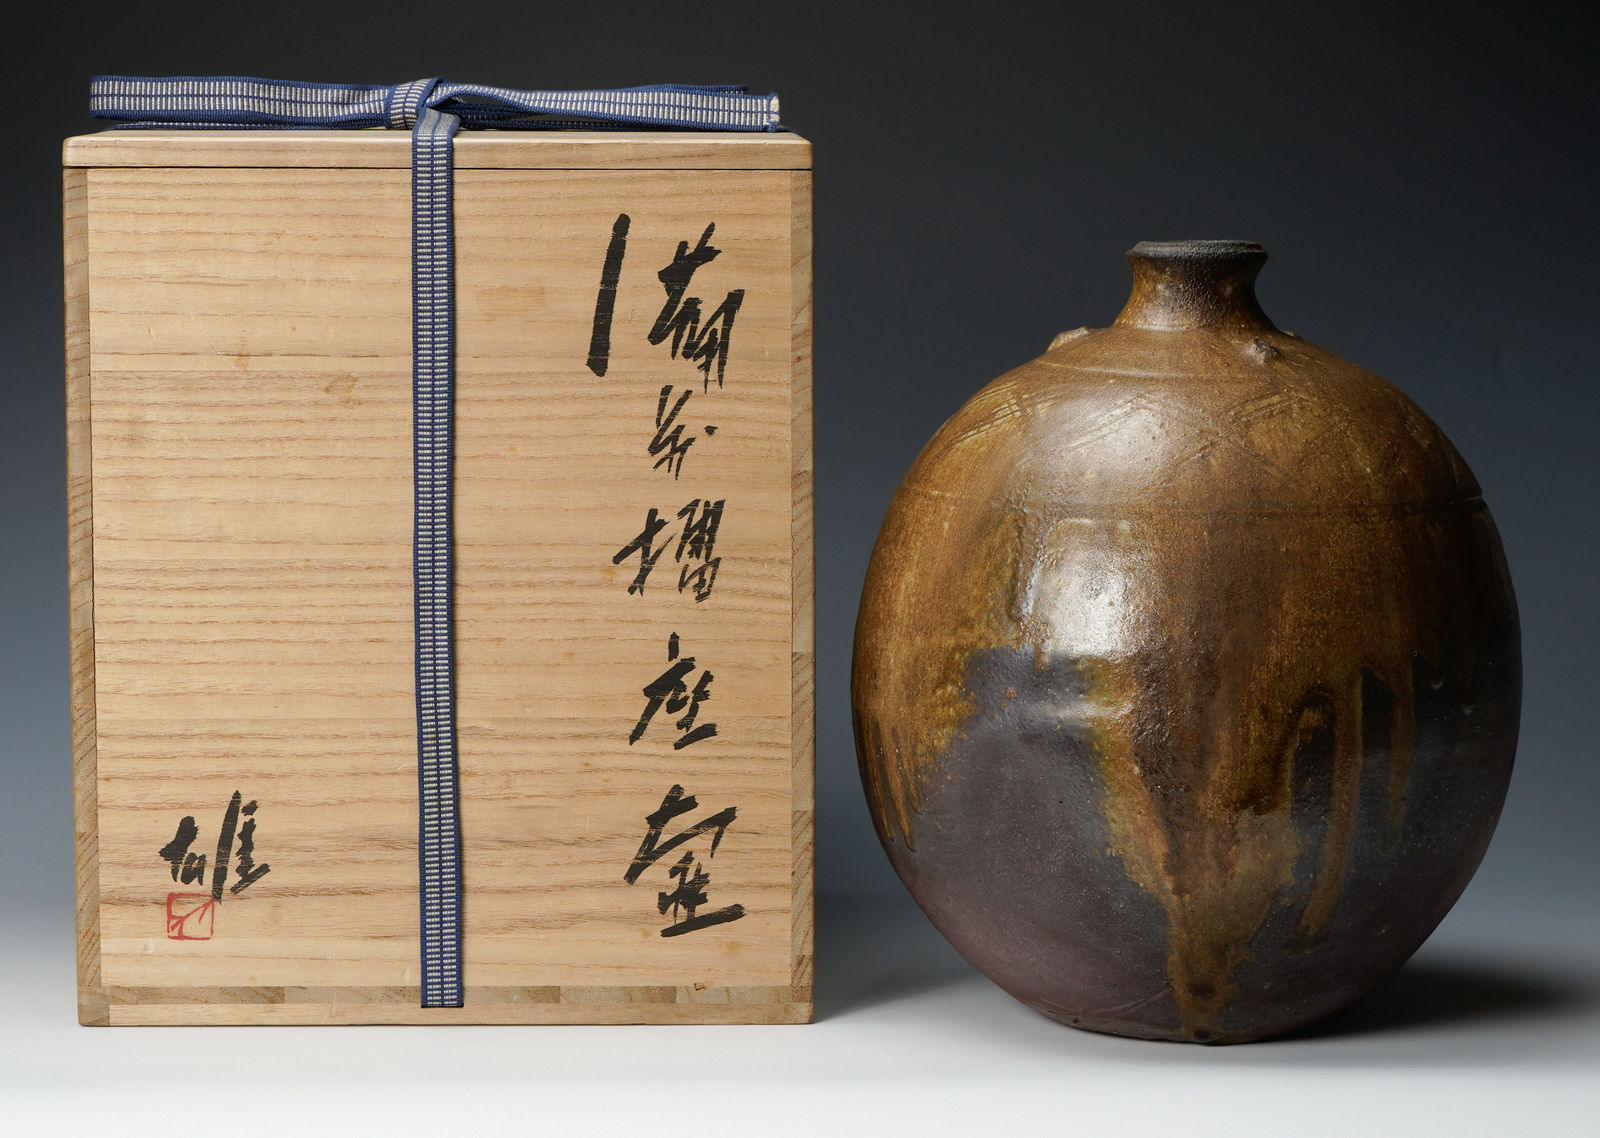 備前擂座壷
雄